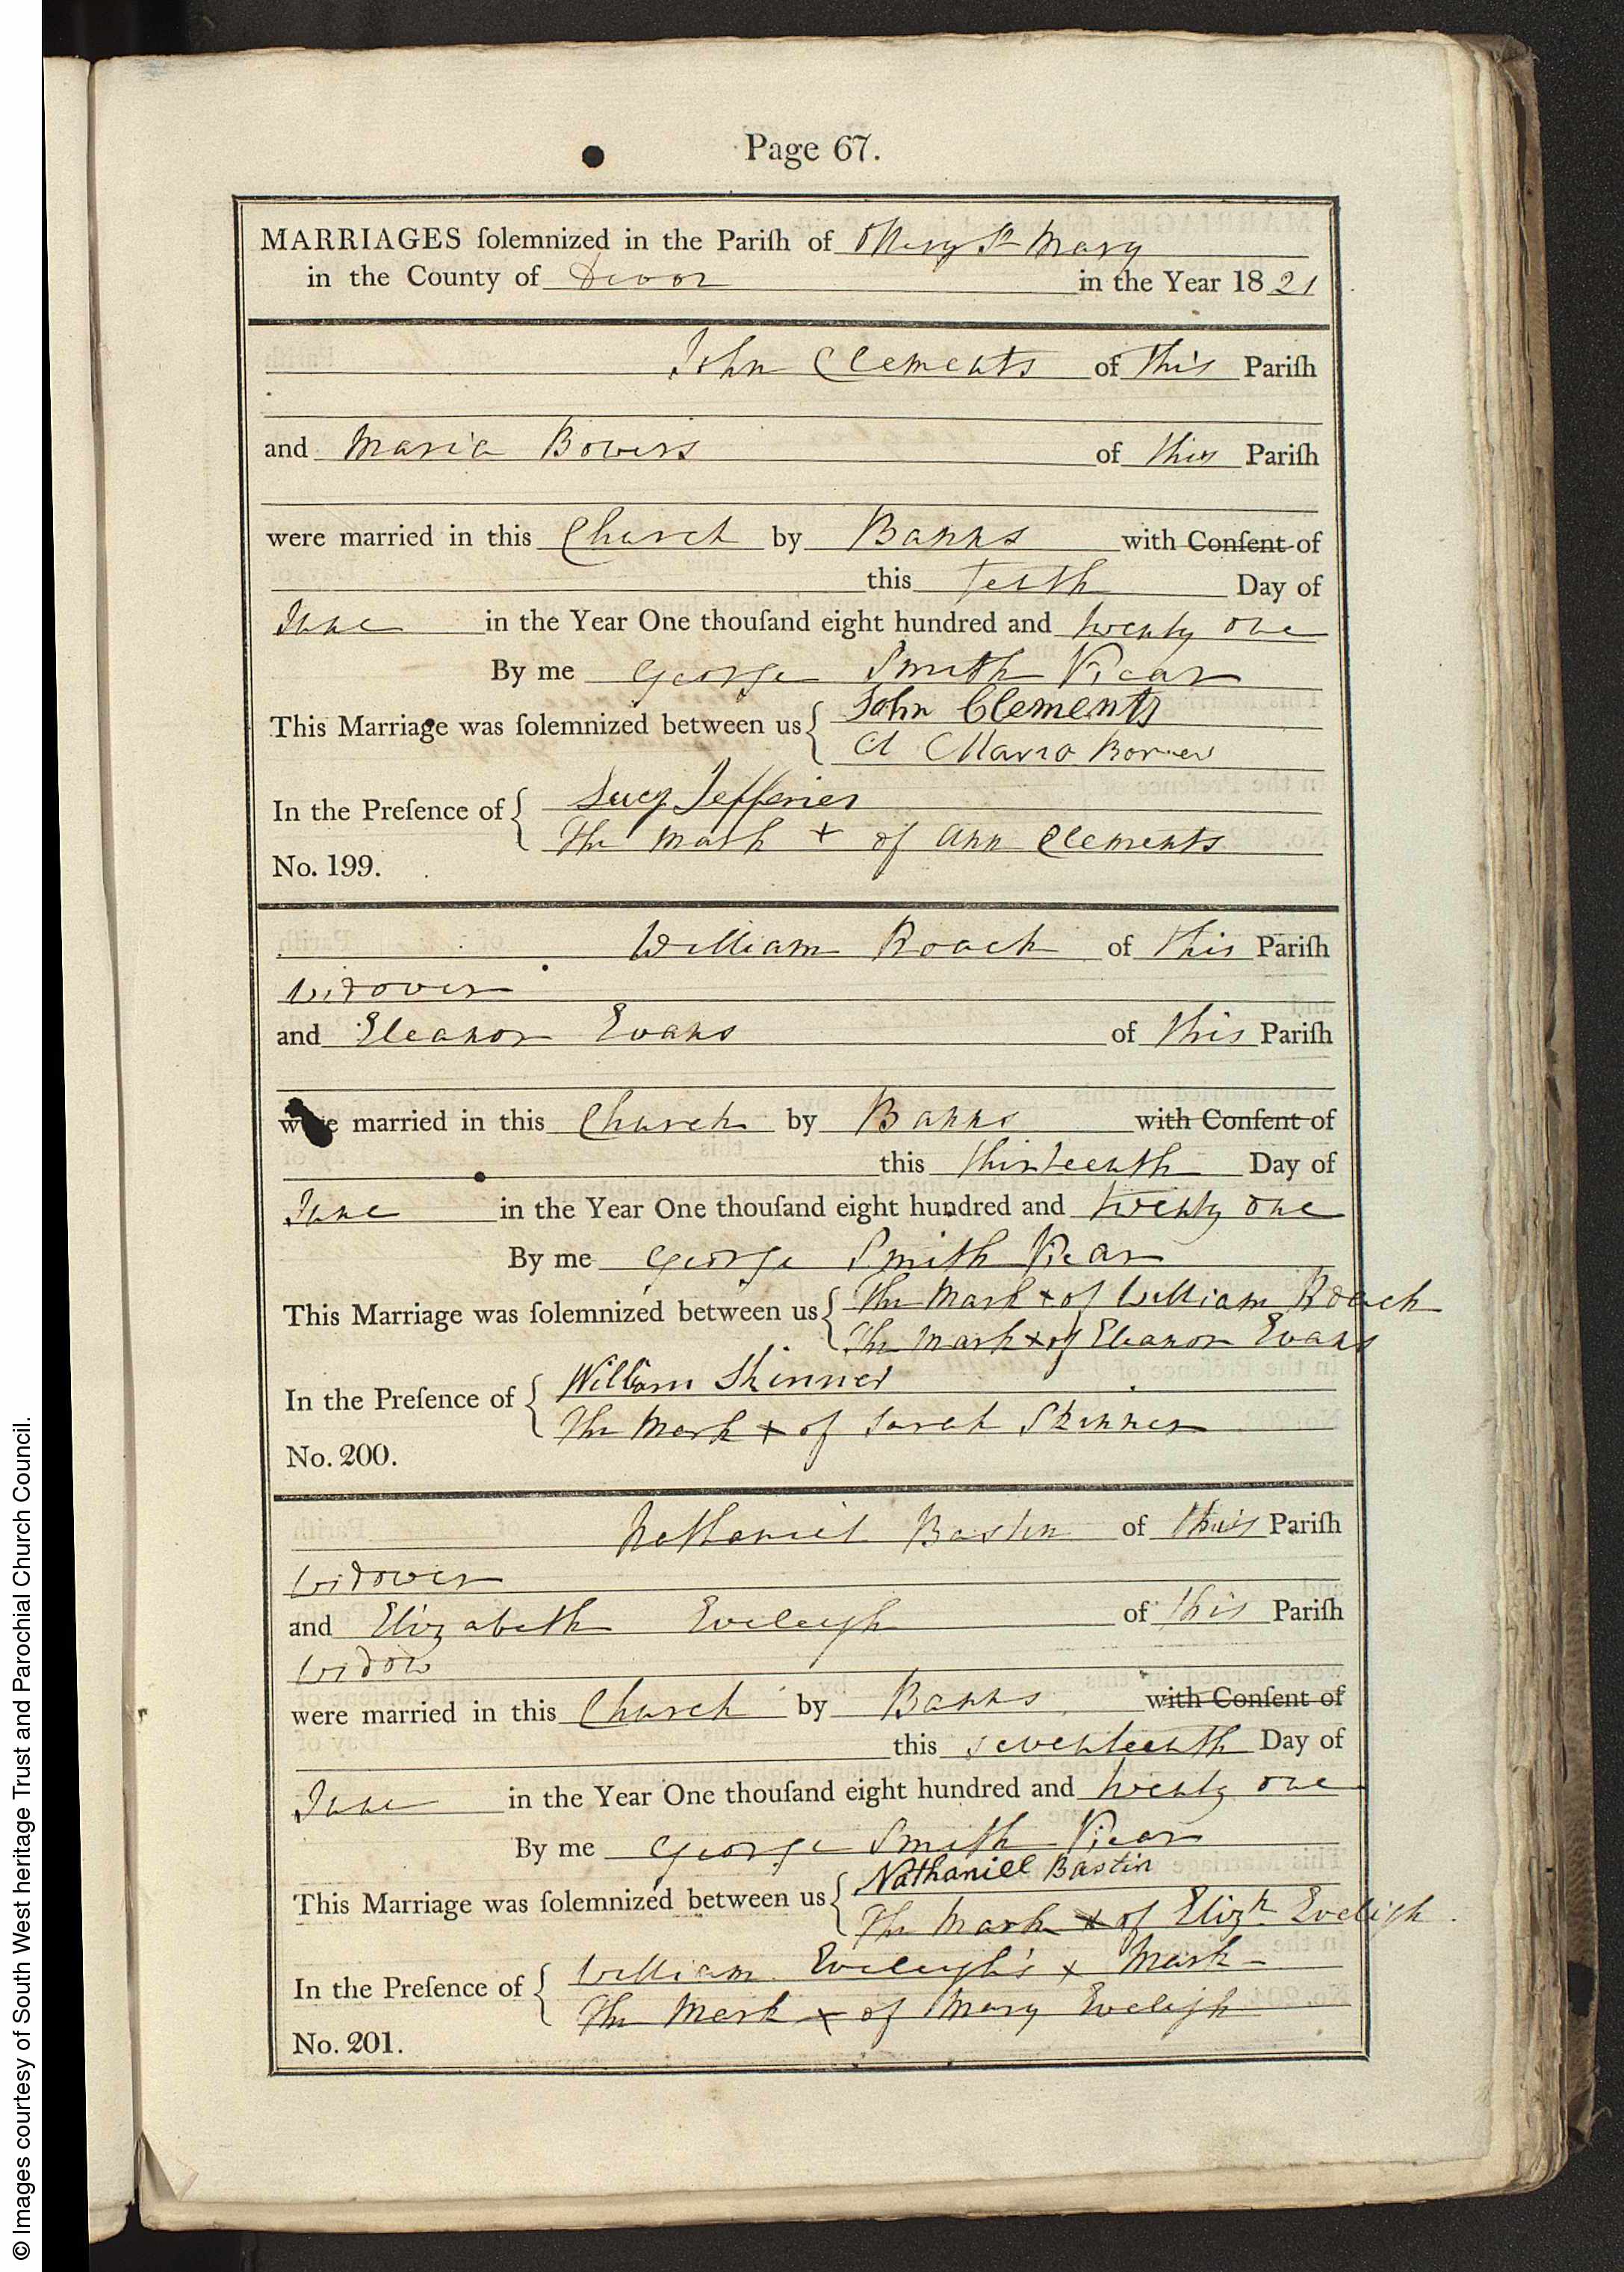 Page 67.
MARRIAGES ſolemnized in the Pariſh of Ottery St Mary
in the County of Devon in the Year 1821
John Clements of this Pariſh
and Maria Bowers of this Pariſh
were married in this Church by Banns with Conſent of
this Tenth Day of
June in the Year One thouſand eight hundred and twenty one
By me George Smith Vicar
This Marriage was ſolemnized between us { John Clements
Maria
In the Preſence of { Lucy Jefferies
The mark + of Ann Clements
No. 199.
William Roach of this Pariſh
Widower
and Eleanor Evans of this Pariſh
were married in this Church by Banns with Conſent of
this thirteenth Day of
June in the Year One thouſand eight hundred and twenty one
By me George Smith Vicar
This Marriage was ſolemnized between us { The Mark + of William Roach
The Mark + of Eleanor Evans
In the Preſence of { William Skinner
The Mark + of Sarah Skinner
No. 200.
Nathaniel Bastin of this Pariſh
Widower
and Elizabeth Eveleigh of this Pariſh
Widow
were married in this Church by Banns with Conſent of
this seventeenth Day of
June in the Year One thouſand eight hundred and twenty one
By me George Smith Vicar
This Marriage was ſolemnized between us { Nathaniell Bastin
The Mark + of Elizh Eveligh
In the Preſence of { William Eveleigh's + Mark
The Mark + of Mary Eveligh
No. 201.
© Images courtesy of South West heritage Trust and Parochial Church Council.